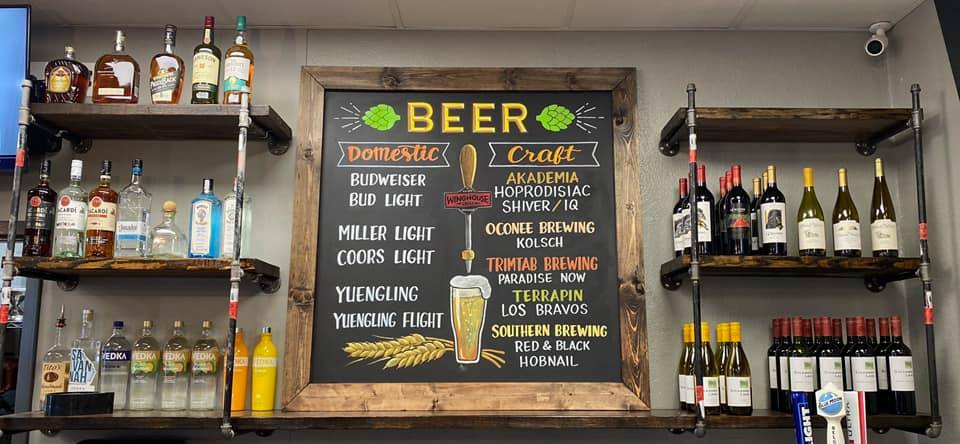 BEER
Domestic
BUDWEISER
BUD LIGHT
MILLER LIGHT
COORS LIGHT
YUENGLING
YUENGLING FLIGHT
WINGHOUSE
Craft
AKADEMIA
HOPRODISIAC
SHIVER/IQ
OCONEE BREWING
KOLSCH
TRIMTAB BREWING
PARADISE NOW
TERRAPIN
LOS BRAVOS
SOUTHERN BREWING
RED & BLACK
HOBNAIL
JAMESON
BACARDÍ
BACARDÍ
Tito's
SA
VAN
NAH
VEDKA
VEDKA
VEDKA
VEDKA
LIGHT
BLUE MOON